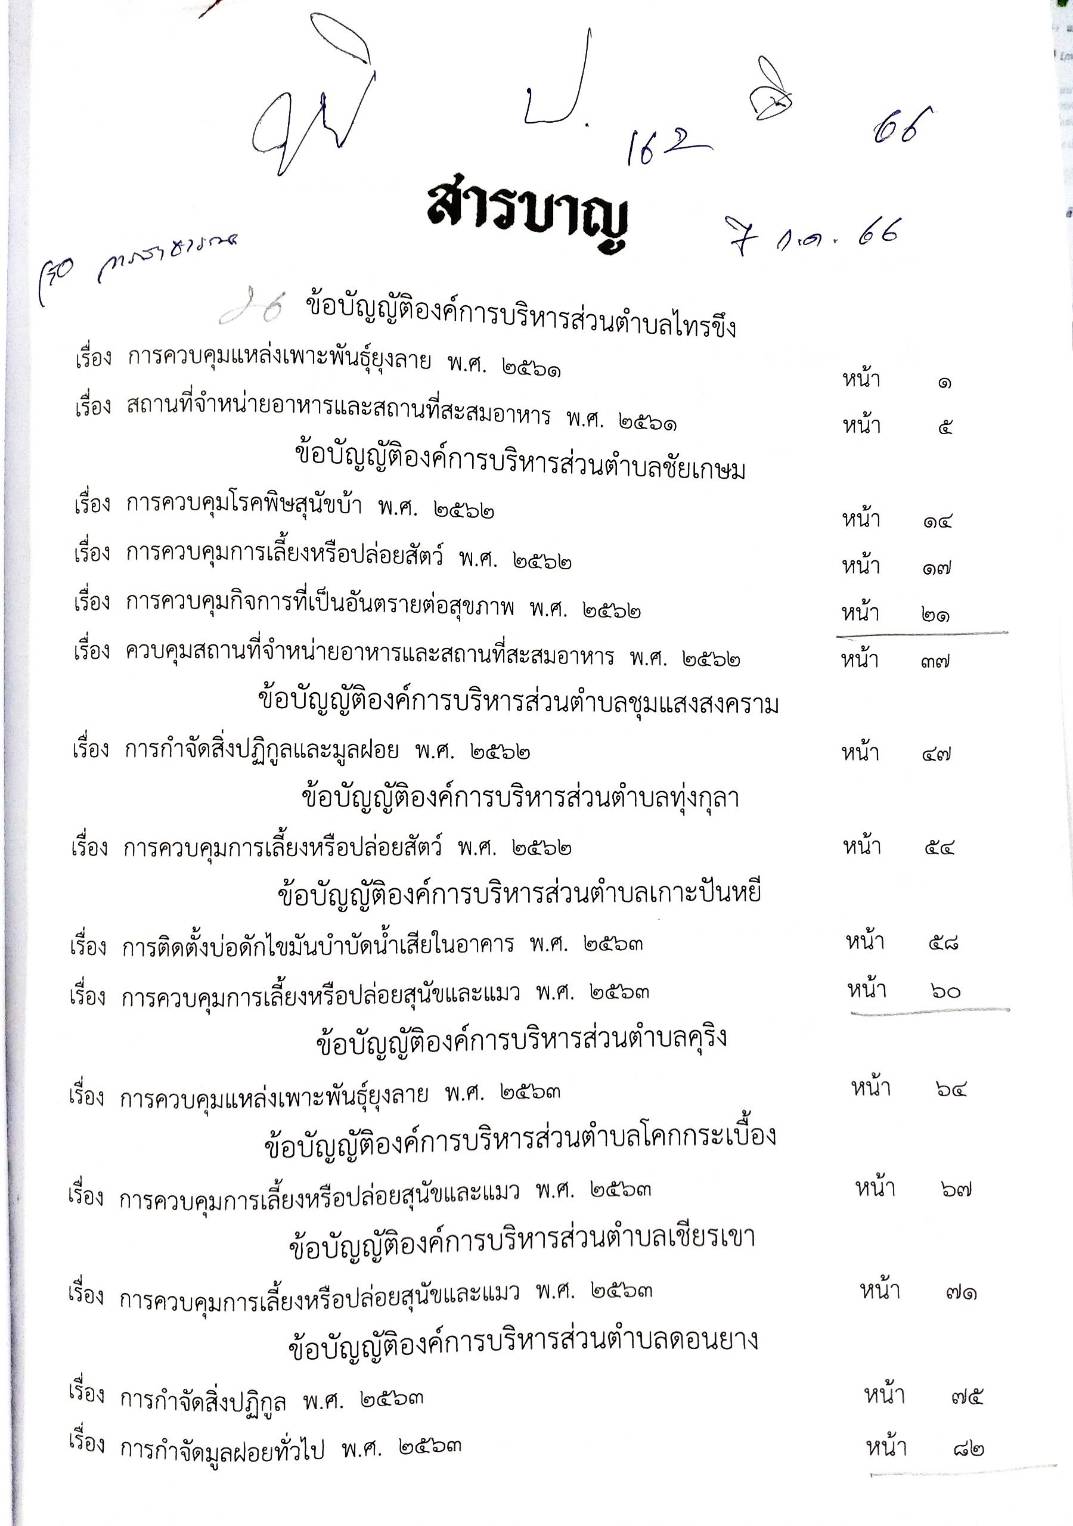 ป.
162
66
สารบาญ
7 ก.ค. 66
26
ข้อบัญญัติองค์การบริหารส่วนตำบลไทรขึง
เรื่อง การควบคุมแหล่งเพาะพันธุ์ยุงลาย พ.ศ. ๒๕๖๑ หน้า ๑
เรื่อง สถานที่จำหน่ายอาหารและสถานที่สะสมอาหาร พ.ศ. ๒๕๖๑ หน้า ๕
ข้อบัญญัติองค์การบริหารส่วนตำบลชัยเกษม
เรื่อง การควบคุมโรคพิษสุนัขบ้า พ.ศ. ๒๕๖๒ หน้า ๑๔
เรื่อง การควบคุมการเลี้ยงหรือปล่อยสัตว์ พ.ศ. ๒๕๖๒ หน้า ๑๗
เรื่อง การควบคุมกิจการที่เป็นอันตรายต่อสุขภาพ พ.ศ. ๒๕๖๒ หน้า ๒๑
เรื่อง ควบคุมสถานที่จำหน่ายอาหารและสถานที่สะสมอาหาร พ.ศ. ๒๕๖๒ หน้า ๓๗
ข้อบัญญัติองค์การบริหารส่วนตำบลชุมแสงสงคราม
เรื่อง การกำจัดสิ่งปฏิกูลและมูลฝอย พ.ศ. ๒๕๖๒ หน้า ๔๗
ข้อบัญญัติองค์การบริหารส่วนตำบลทุ่งกุลา
เรื่อง การควบคุมการเลี้ยงหรือปล่อยสัตว์ พ.ศ. ๒๕๖๒ หน้า ๕๔
ข้อบัญญัติองค์การบริหารส่วนตำบลเกาะปันหยี
เรื่อง การติดตั้งบ่อดักไขมันบำบัดน้ำเสียในอาคาร พ.ศ. ๒๕๖๓ หน้า ๕๘
เรื่อง การควบคุมการเลี้ยงหรือปล่อยสุนัขและแมว พ.ศ. ๒๕๖๓ หน้า ๖๐
ข้อบัญญัติองค์การบริหารส่วนตำบลคุริง
เรื่อง การควบคุมแหล่งเพาะพันธุ์ยุงลาย พ.ศ. ๒๕๖๓ หน้า ๖๔
ข้อบัญญัติองค์การบริหารส่วนตำบลโคกกระเบื้อง
เรื่อง การควบคุมการเลี้ยงหรือปล่อยสุนัขและแมว พ.ศ. ๒๕๖๓ หน้า ๖๗
ข้อบัญญัติองค์การบริหารส่วนตำบลเชียรเขา
เรื่อง การควบคุมการเลี้ยงหรือปล่อยสุนัขและแมว พ.ศ. ๒๕๖๓ หน้า ๗๑
ข้อบัญญัติองค์การบริหารส่วนตำบลดอนยาง
เรื่อง การกำจัดสิ่งปฏิกูล พ.ศ. ๒๕๖๓ หน้า ๗๕
เรื่อง การกำจัดมูลฝอยทั่วไป พ.ศ. ๒๕๖๓ หน้า ๘๒